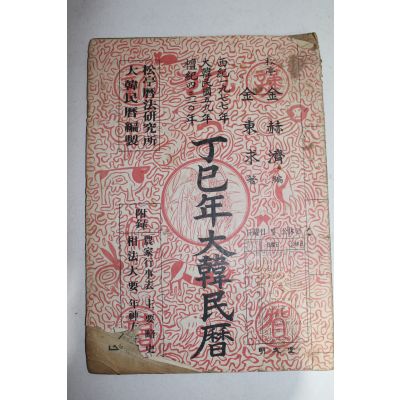 松亭 金赫濟 編
金東求 著
西紀一九七七年
大韓民國五九年
檀紀四三一〇年
丁巳年大韓民曆
松亭曆法硏究所
大韓民曆編製
附錄
農家行事表
主要略史
相法大要
年神方
明文堂